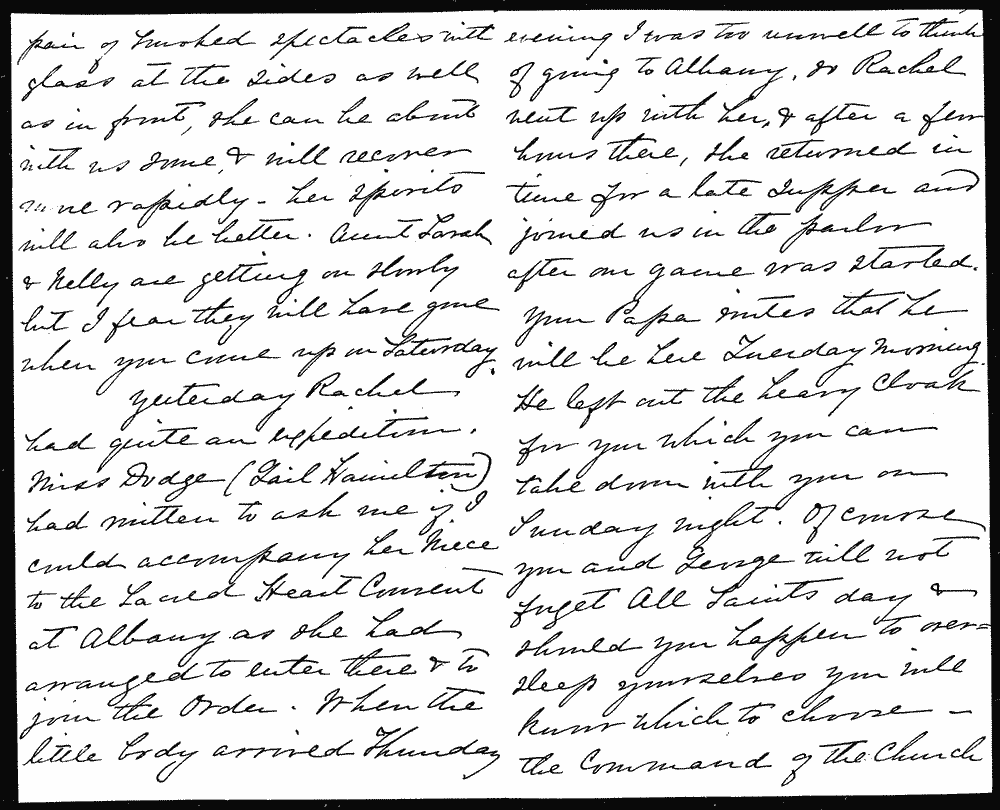 pair of smoked spectacles with
glass at the sides as well
as in front, she can be about
with us some, & will recover
more rapidly - her spirits
will also be better. Aunt Sarah
& Nelly are getting on slowly
but I fear they will have gone
when you come up on Saturday.
Yesterday Rachel
had quite an expedition.
Miss Dodge (Gail Hamilton)
had written to ask me if I
could accompany her Niece
to the Sacred Heart Convent
at Albany as she had
arranged to enter there & to
join the Order. When the
little body arrived Thursday
evening I was too unwell to think
of going to Albany, so Rachel
went up with her, & after a few
hours there, she returned in
time for a late supper and
joined us in the parlor
after our game was started.
Your Papa writes that he
will be here Tuesday Morning.
He left out the heavy Cloak
for you which you can
take down with you on
Sunday night. Of course
you and George will not
forget All Saints day &
should you happen to over=
sleep yourselves you will
know which to choose -
the Command of the Church